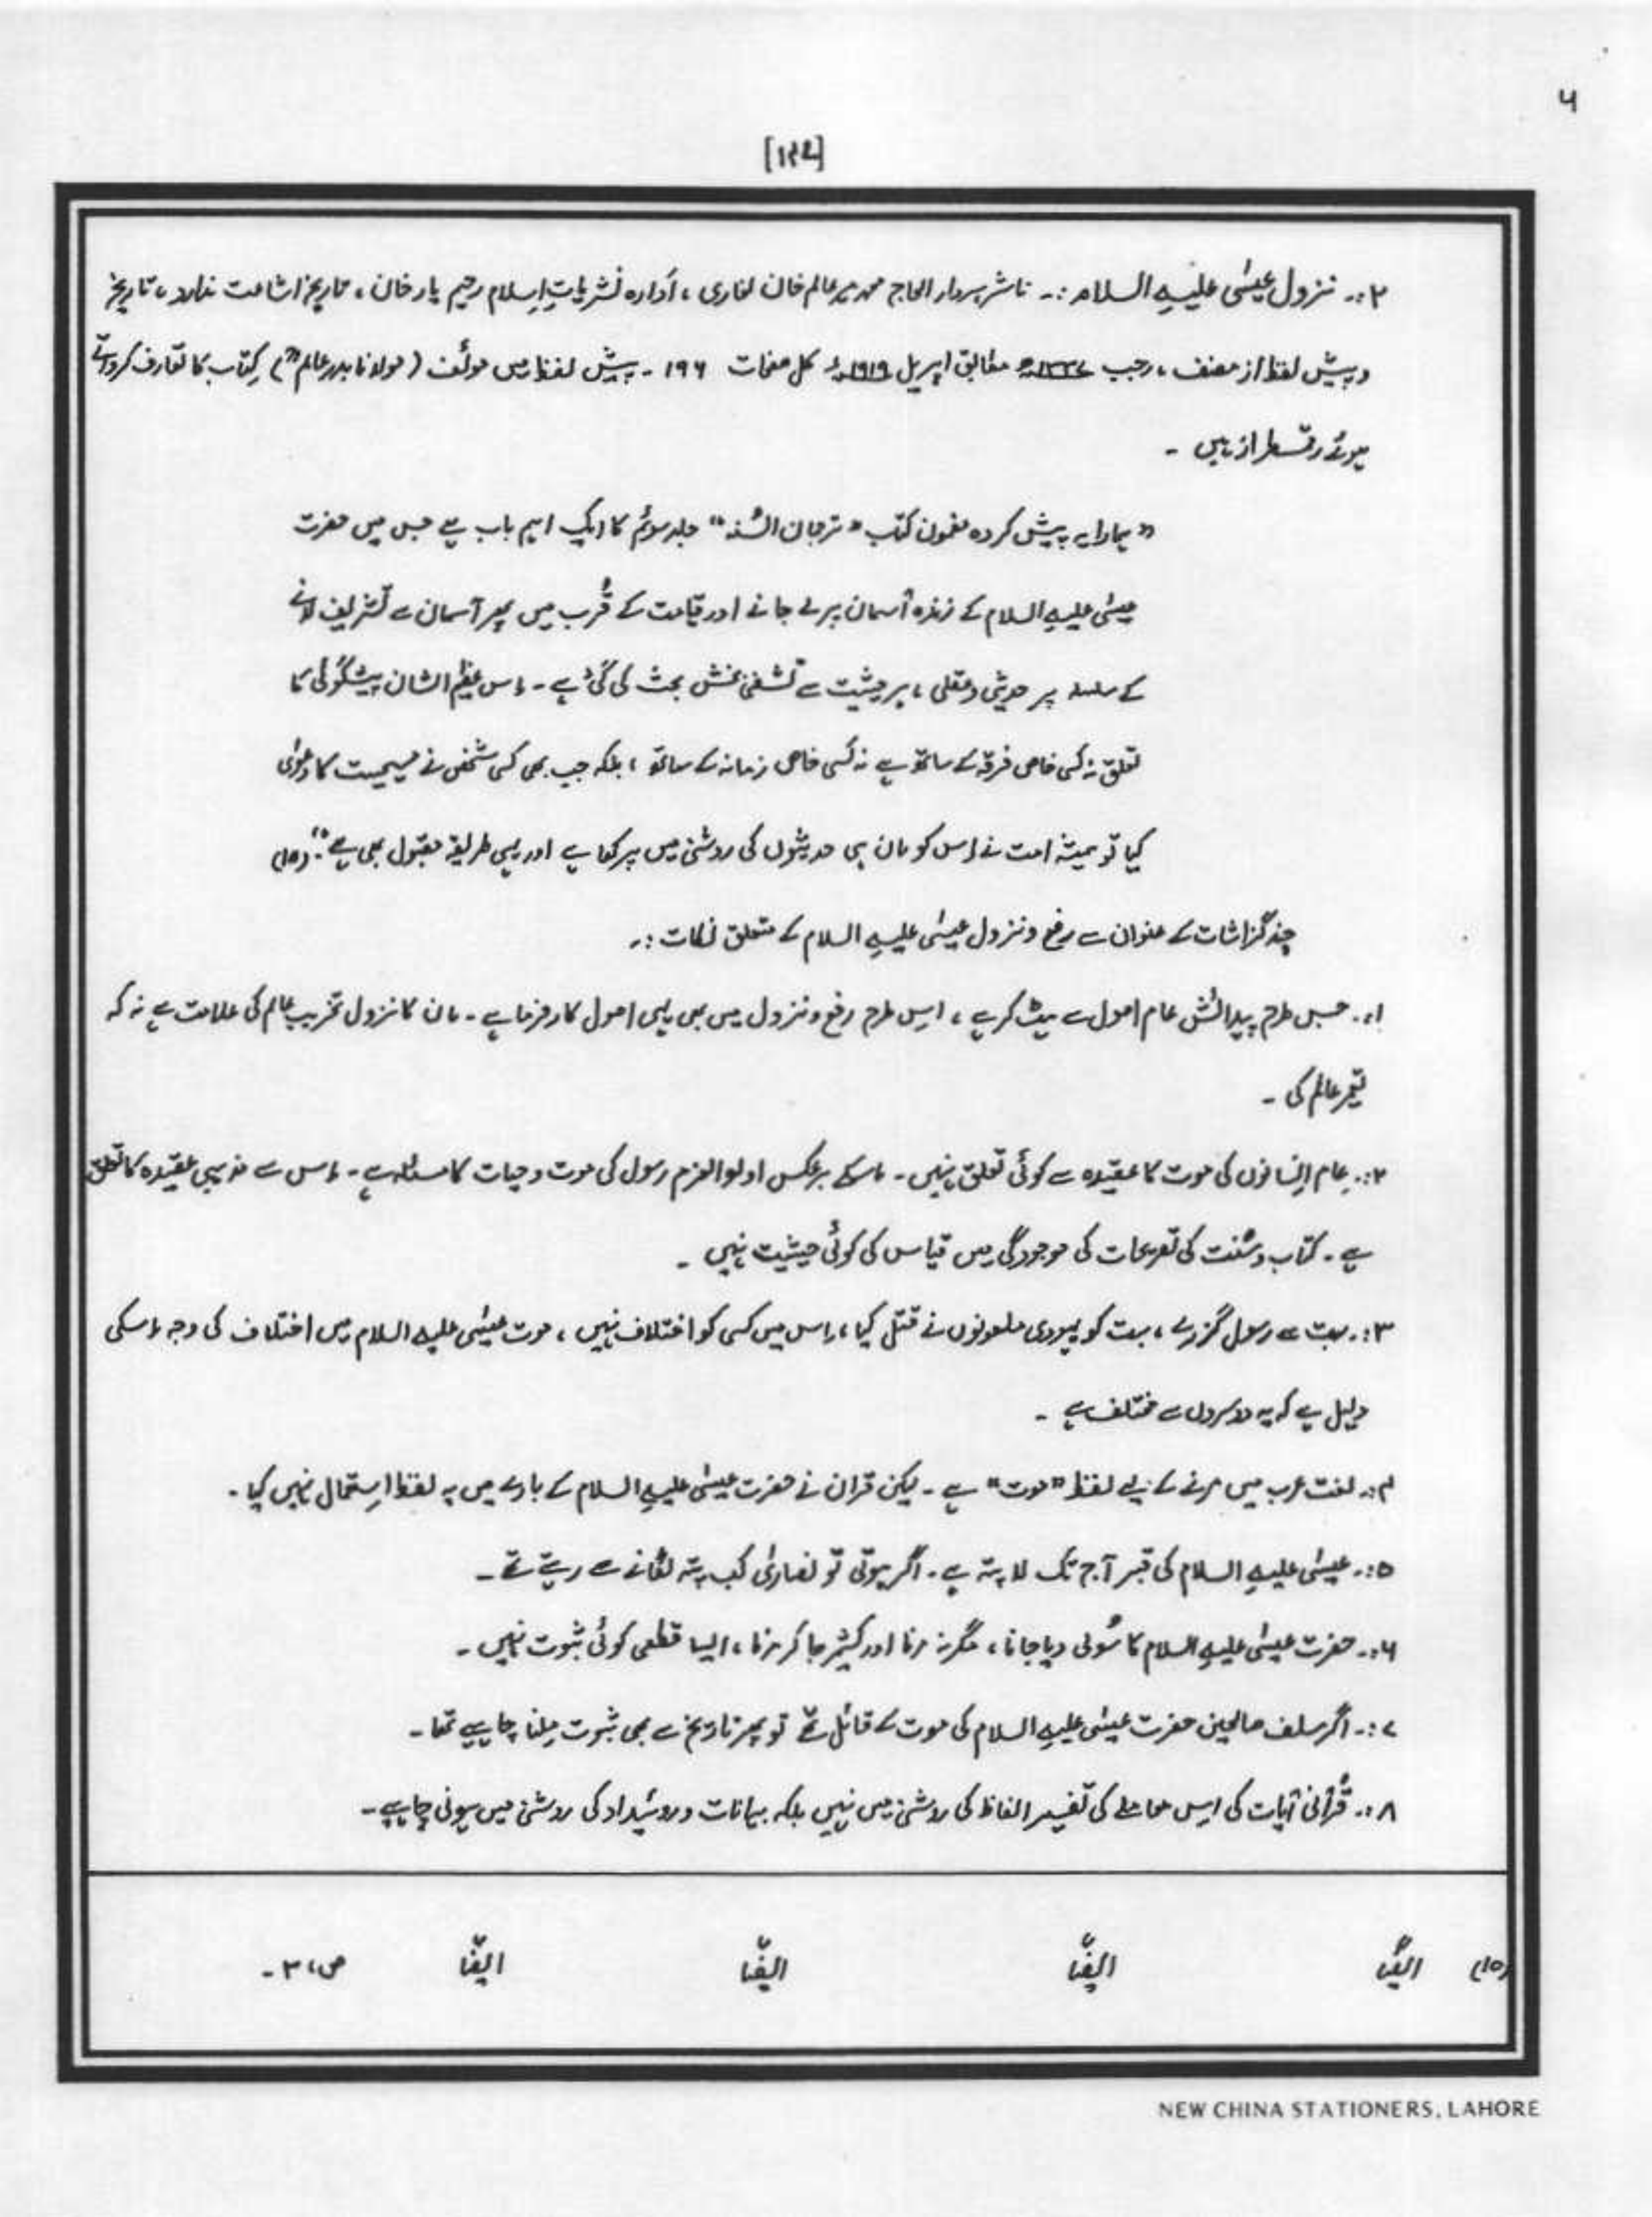 ۶
[۱۴۴]
۲:۔ نزول عیسٰی علیہ السلام :۔ ناشر سردار الحاج محمد میر عالم خان لغاری ، اَدارہ نشریاتِ اِسلام رحیم یار خان ، تاریخ اشاعت ندارد ، تاریخ
و پیش لفظ از مصنف ، رجب مطابق اپریل ۱۹۱۹ء کل صفحات ۱۹۶ ۔ پیش لفظ میں مولّف (مولانا بدر عالمؒ) کِتاب کا تعارف کرواتے
ہوئے رقمطراز ہیں ۔
"ہمارا یہ پیش کردہ مضمون کتاب "ترجمان السُّنہ" جلد سوئم کا ایک اہم باب ہے جس میں حضرت
عیسٰی علیہ السلام کے زندہ آسمان پر لے جانے اور قیامت کے قُرب میں پھر آسمان سے تشریف لانے
کے سلسلہ پر حدیثی و عقلی ، ہر حیثیت سے تشفی بخش بحث کی گئی ہے ۔ اِس عظیم الشان پیشگوئی کا
تعلق نہ کسی خاص فرقہ کے ساتھ ہے نہ کسی خاص زمانہ کے ساتھ ، بلکہ جب بھی کسی شخص نے مسیحیت کا دعوٰی
کیا تو ہمیشہ امت نے اِس کو اِن ہی حدیثوں کی روشنی میں پرکھا ہے اور یہی طریقہ مقبول بھی ہے"۔ (۱۵)
چند گزاشات کے عنوان سے رفع و نزول عیسٰی علیہ السلام کے متعلق نکات :۔
۱:۔ جس طرح پیدائش عام اصول سے ہٹ کر ہے ، اِسی طرح رفع و نزول میں بھی یہی اصول کارفرما ہے ۔ اِن کا نزول تخریبِ عالم کی علامت ہے نہ کہ
تعمیر عالم کی ۔
۲:۔ عام اِنسانوں کی موت کا عقیدہ سے کوئی تعلق نہیں ۔ اِسکے برعکس اولوالعزم رسول کی موت و حیات کا مسئلہ ہے ۔ اِس سے مذہبی عقیدہ کا تعلق
ہے ۔ کتاب و سُنت کی تصریحات کی موجودگی میں قیاس کی کوئی حیثیت نہیں ۔
۳:۔ بہت سے رسول گزرے ، بہت کو یہودی ملعونوں نے قتل کیا ، اِس میں کسی کو اختلاف نہیں ، موت عیسٰی علیہ السلام میں اختلاف کی وجہ اِسکی
دلیل ہے کہ یہ دوسروں سے مختلف ہے ۔
۴:۔ لغت عرب میں مرنے کے لیے لفظ "موت" ہے ۔ لیکن قران نے حضرت عیسٰی علیہ السلام کے بارے میں یہ لفظ اِستعمال نہیں کیا ۔
۵:۔ عیسٰی علیہ السلام کی قبر آج تک لا پتہ ہے ۔ اگر ہوتی تو نصارٰی کب پتہ لگانے سے رہتے تھے ۔
۶:۔ حضرت عیسٰی علیہ السلام کا سُولی دیا جانا ، مگر نہ مرنا اور کشمیر جا کر مرنا ، ایسا قطعی کوئی ثبوت نہیں ۔
۷:۔ اگر سلف صالحین حضرت عیسٰی علیہ السلام کی موت کے قائل تھے تو پھر تاریخ سے بھی ثبوت مِلنا چاہیے تھا ۔
۸:۔ قُرآنی آیات کی اِس معاملے کی تفسیر الفاظ کی روشنی میں نہیں بلکہ بیانات و روئیداد کی روشنی میں ہونی چاہیے ۔
(۱۵) ایضًا ایضًا ایضًا ایضًا ص، ۳ ۔
NEW CHINA STATIONERS, LAHORE